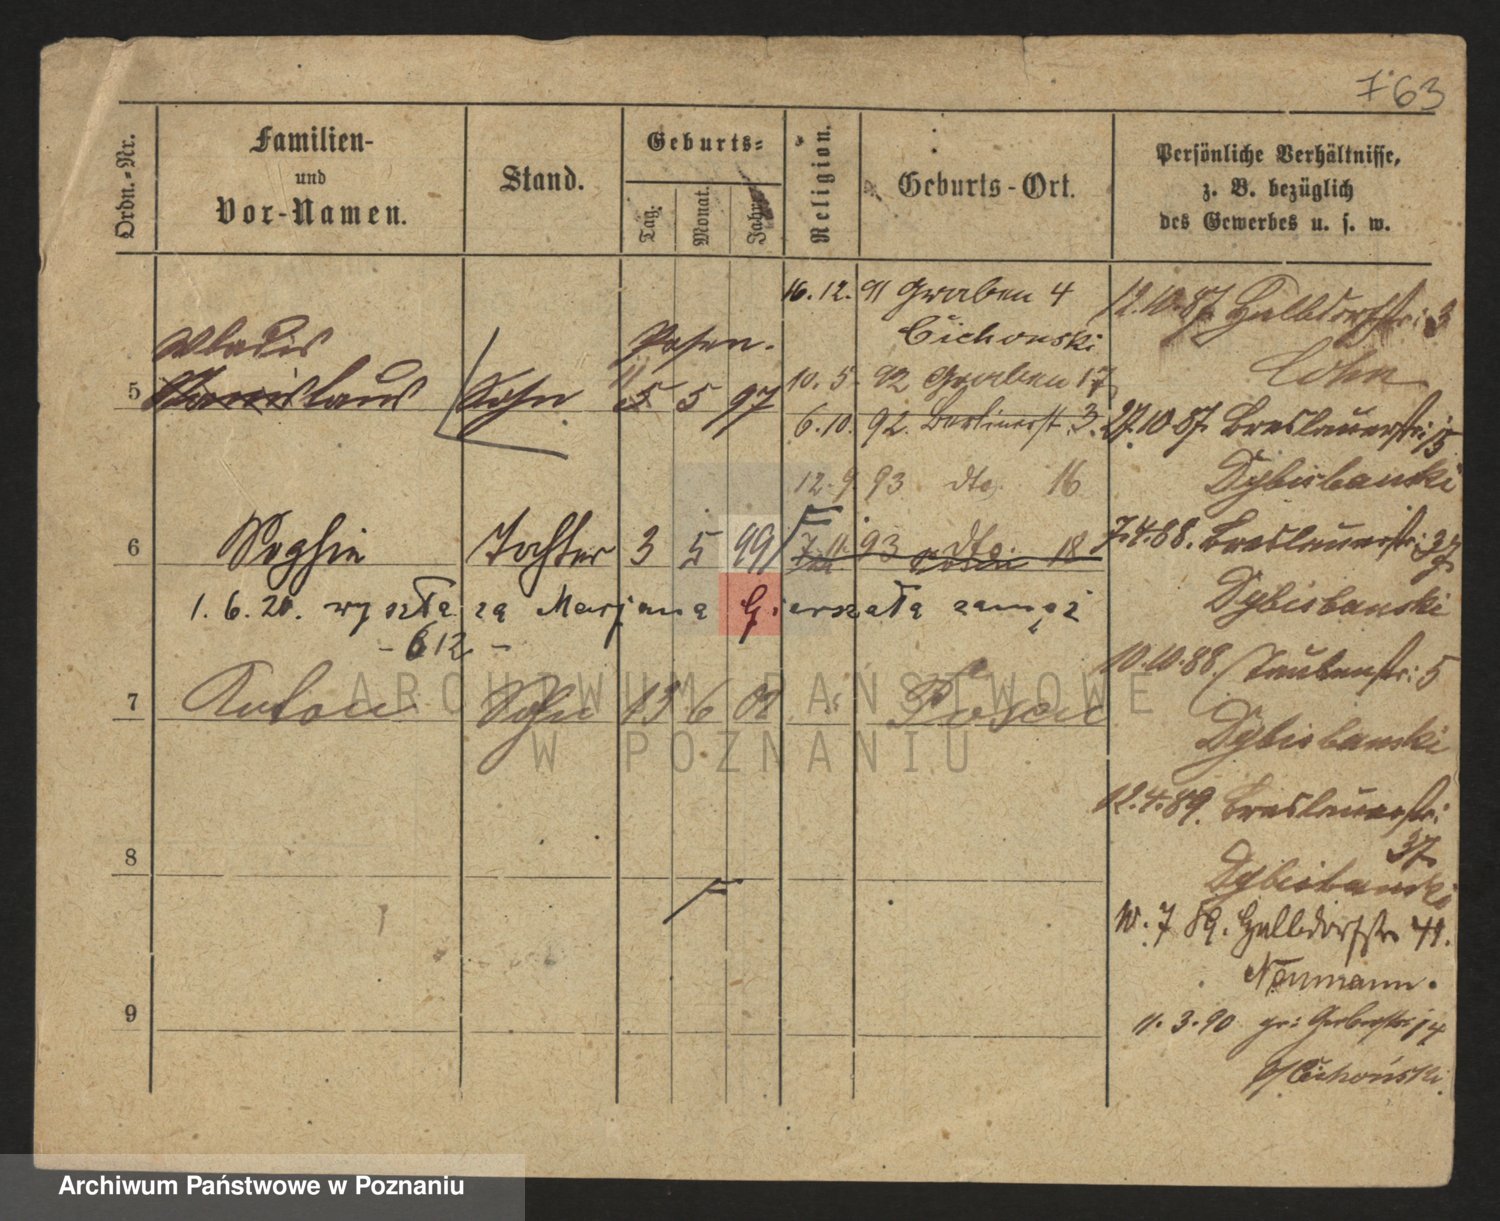 763
Ordn.-Nr.
Familien-
und
Vor-Namen.
Stand.
Geburts-
Tag.
Monat.
Jahr.
Religion.
Geburts-Ort.
Persönliche Verhältnisse,
z. B. bezüglich
des Gewerbes u. s. w.
16. 12. 91 Graben 4
Cichonski
Wladis
Posen.
5 Stanislaus Sohn 5 5 97
10. 5. 92 Graben 17
6. 10. 92. Berlinerst. 3.
12. 9 93 dto. 16
6 Sophie Tochter 3 5 99
7. 11. 93 dto. 18
1. 6. 20. wyszła za Marjana Gierszała zamąż
- 612 -
7 Anton Sohn 13 6 02 " Posen
8
9
12.10.87. Halbdorfstr: 3
Cohn
27.10.87. Breslauerstr: 15
Dybisbanski
7.4.88. Breslauerstr: 37
Dybisbanski
10.10.88. Taubenstr: 5
Dybisbanski
12.4.89. Breslauerstr:
37.
Dybisbanski
10. 7 89. Halbdorfstr. 41.
Neumann.
11. 3. 90 gr: Gerberstr: 14
Cichoński
ARCHIWUM PAŃSTWOWE
W POZNANIU
Archiwum Państwowe w Poznaniu